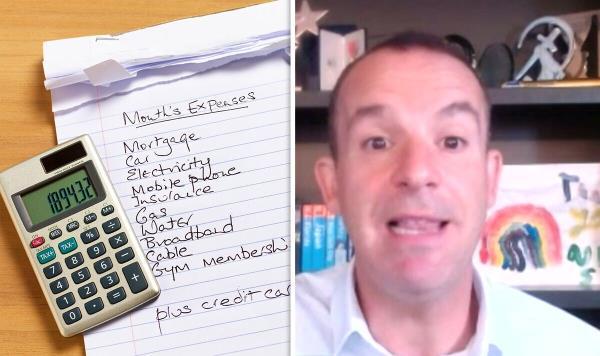 Month's Expenses
Mortgage
Car
Electricity
Mobile phone
Insurance
Gas
Water
Broadband
Cable
Gym Membershi
plus credit car
1894.32
TAX+ TAX-
7 8 9
4 5 6
1 2 3
0